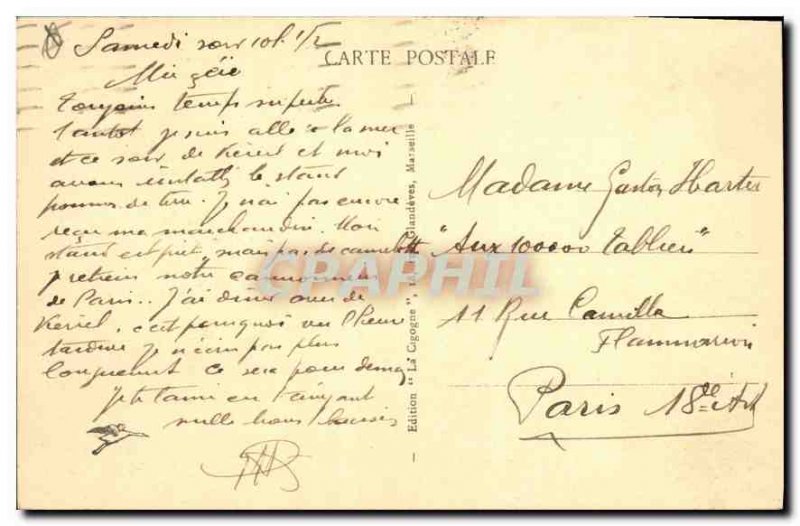 Samedi soir 10h 1/2
CARTE POSTALE
Toujours temps superbe
tantot je suis allé à la mer
et ce soir de Keriel et moi
avons installé le stand
pommes de terre. Je n'ai pas encore
reçu ma marchandise. Mon
stand est prêt, mais pas de camelotte
notre
de Paris.. J'ai diné avec de
Keriel, c'est pourquoi vu l'heure
tardive je n'écris pas plus
longuement ce sera pour demain
Je t'aime en t'envoyant
mille bons baisers
Edition "La Cigogne", Glandèves, Marseille
Madame Gaston Harter
"Aux 100000 Tabliers"
11 Rue Camille
Flammarion
Paris 18è Art
CPAPHIL